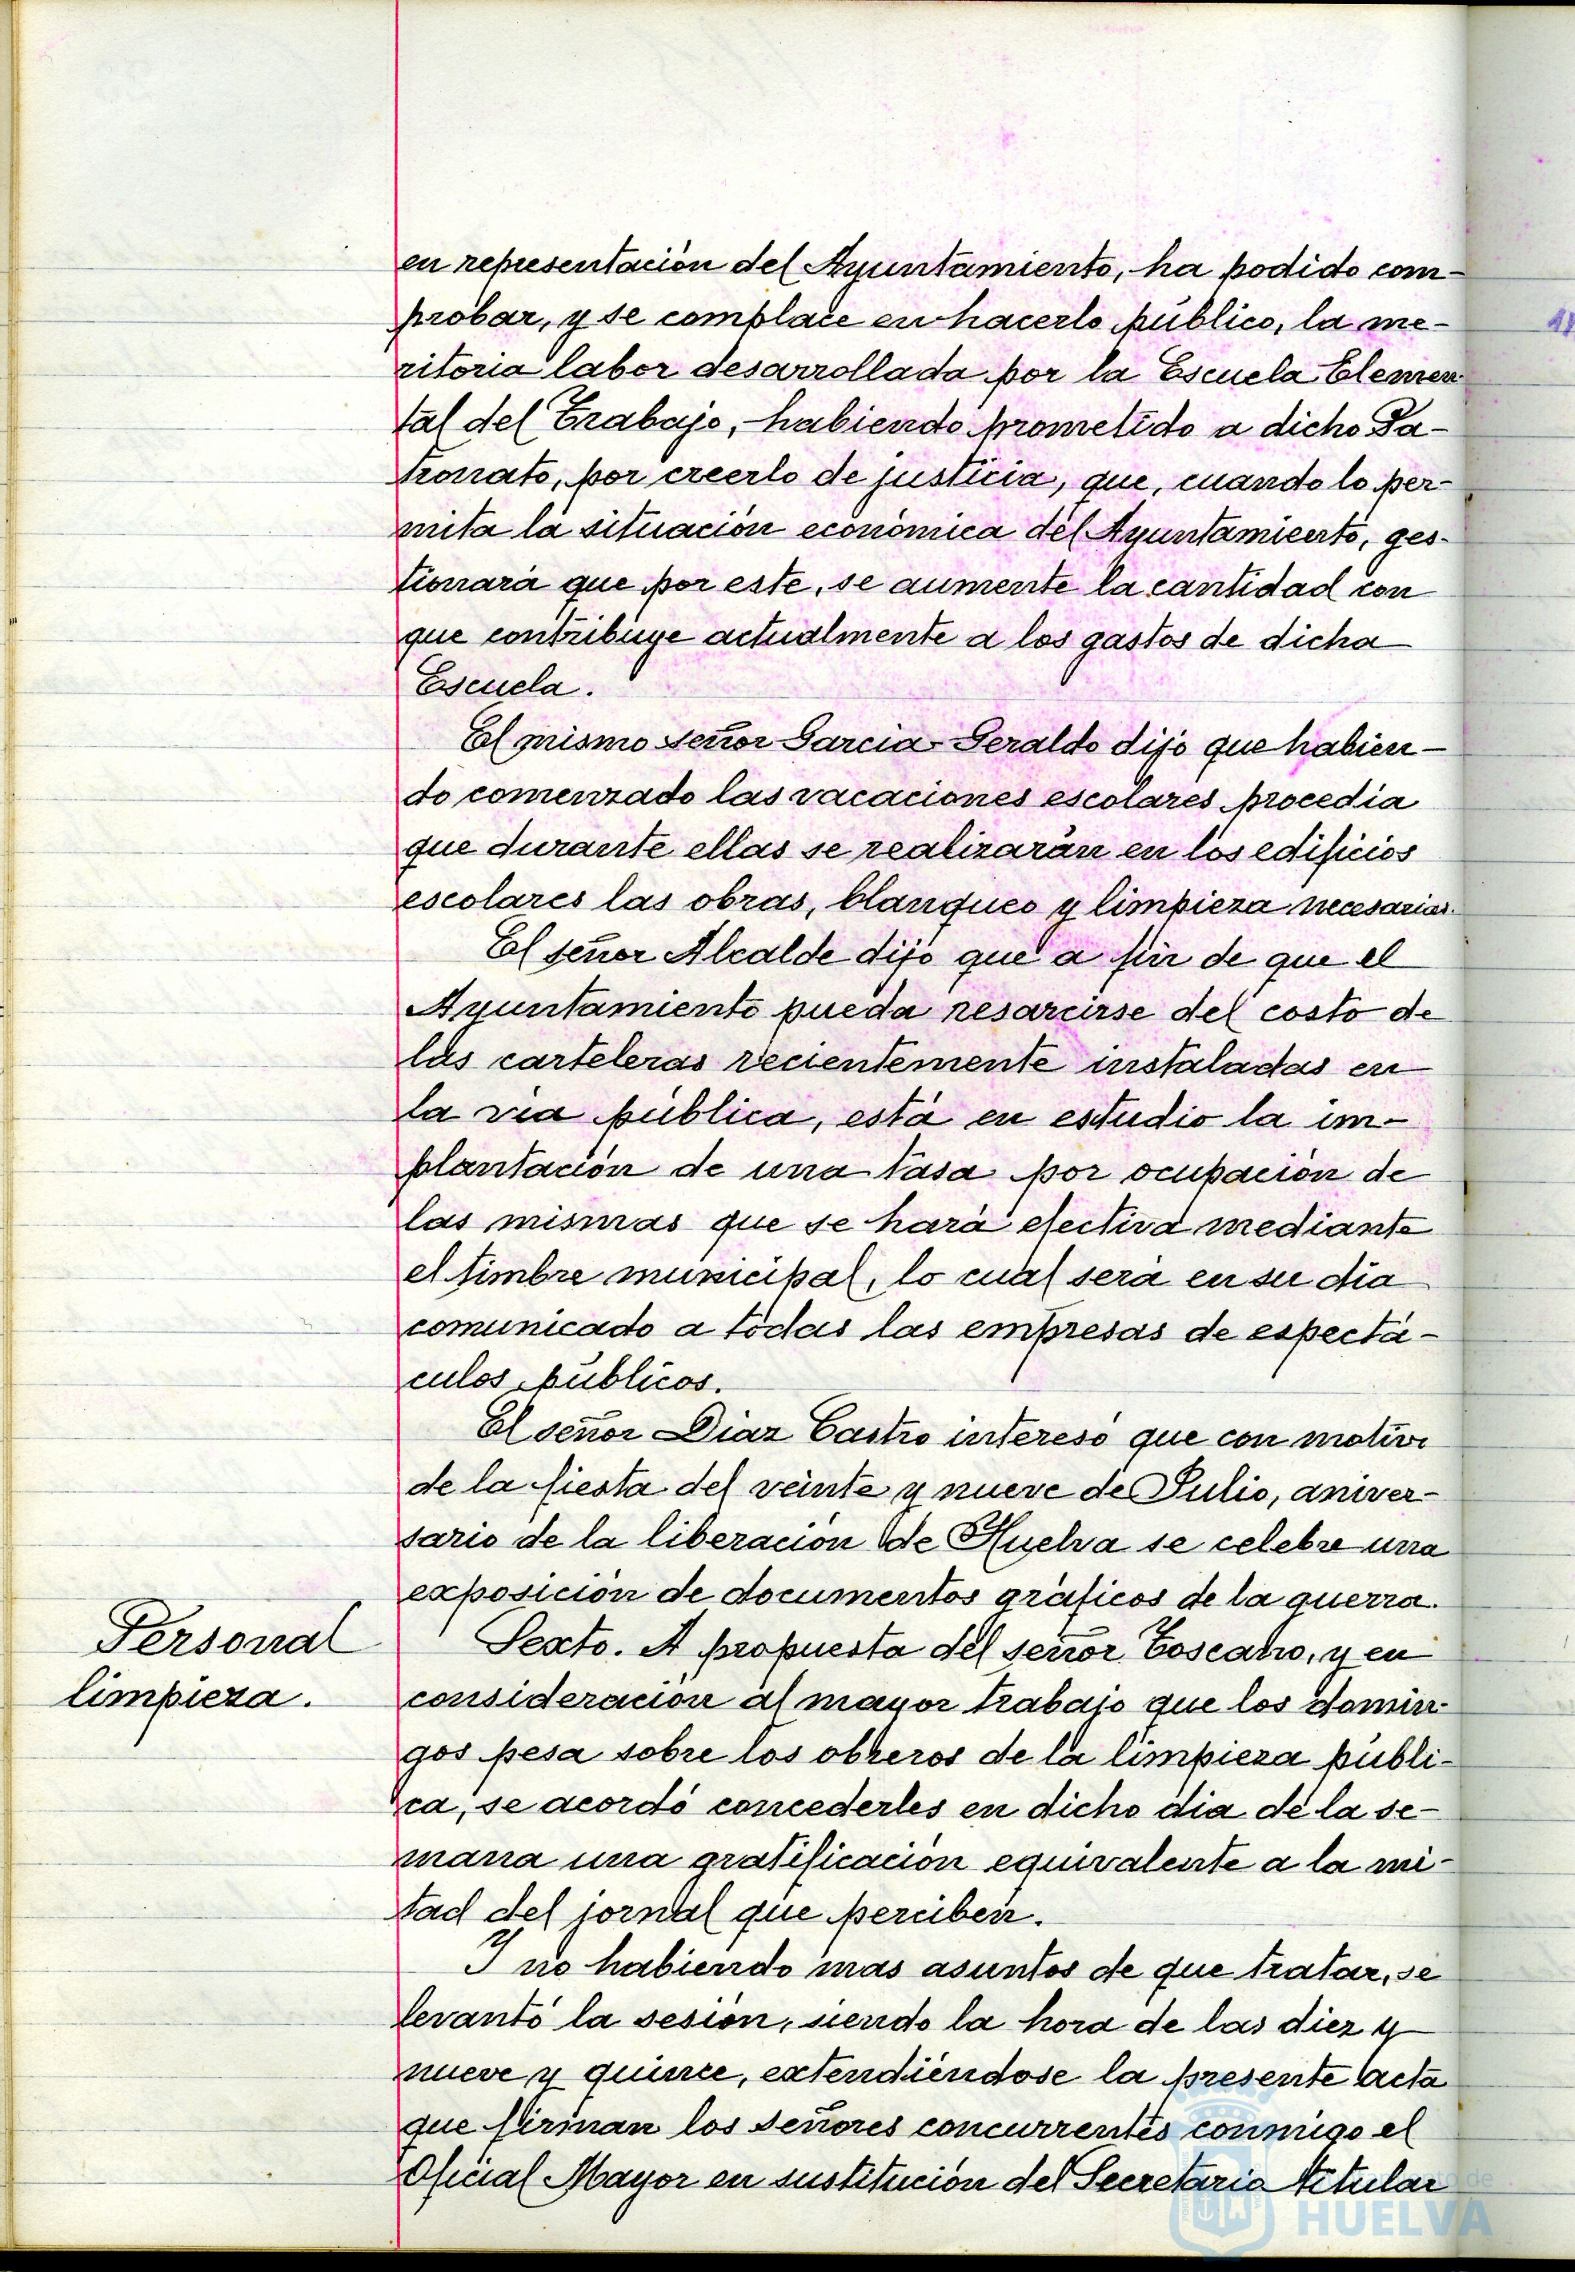 en representación del Ayuntamiento, ha podido com-
probar, y se complace en hacerlo público, la me-
ritoria labor desarrollada por la Escuela Elemen-
tal del Trabajo, habiendo prometido a dicho Pa-
tronato, por creerlo de justicia, que, cuando lo per-
mita la situación económica del Ayuntamiento, ges-
tionará que por este, se aumente la cantidad con
que contribuye actualmente a los gastos de dicha
Escuela.
El mismo señor Garcia-Geraldo dijo que habien-
do comenzado las vacaciones escolares procedia
que durante ellas se realizarán en los edificios
escolares las obras, blanqueo y limpieza necesarias.
El señor Alcalde dijo que a fin de que el
Ayuntamiento pueda resarcirse del costo de
las carteleras recientemente instaladas en
la via pública, está en estudio la im-
plantación de una tasa por ocupación de
las mismas que se hará efectiva mediante
el timbre municipal, lo cual será en su dia
comunicado a todas las empresas de espectá-
culos públicos.
El señor Diaz Castro interesó que con motivo
de la fiesta del veinte y nueve de Julio, aniver-
sario de la liberación de Huelva se celebre una
exposición de documentos gráficos de la guerra.
Personal
limpieza.
Sexto. A propuesta del señor Toscano, y en
consideración al mayor trabajo que los domin-
gos pesa sobre los obreros de la limpieza públi-
ca, se acordó concederles en dicho dia de la se-
mana una gratificación equivalente a la mi-
tad del jornal que perciben.
Y no habiendo mas asuntos de que tratar, se
levantó la sesión, siendo la hora de las diez y
nueve y quince, extendiéndose la presente acta
que firman los señores concurrentes conmigo el
Oficial Mayor en sustitución del Secretario titular
HUELVA